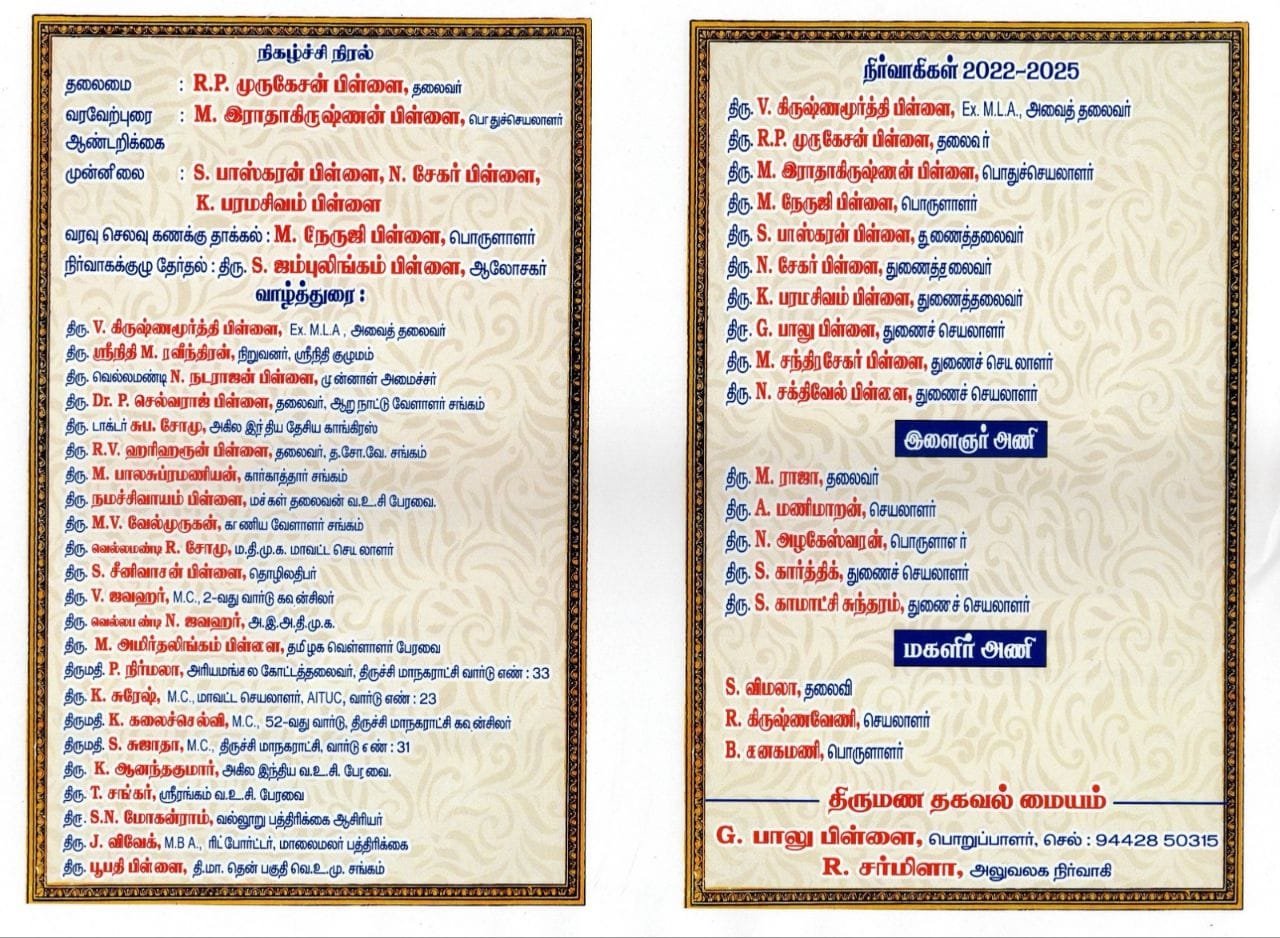 நிகழ்ச்சி நிரல்
தலைமை : R.P. முருகேசன் பிள்ளை, தலைவர்
வரவேற்புரை : M. இராதாகிருஷ்ணன் பிள்ளை, பொதுச்செயலாளர்
ஆண்டறிக்கை
முன்னிலை : S. பாஸ்கரன் பிள்ளை, N. சேகர் பிள்ளை,
K. பரமசிவம் பிள்ளை
வரவு செலவு கணக்கு தாக்கல் : M. நேருஜி பிள்ளை, பொருளாளர்
நிர்வாகக்குழு தேர்தல் : திரு. S. ஜம்புலிங்கம் பிள்ளை, ஆலோசகர்
வாழ்த்துரை :
திரு. V. கிருஷ்ணமூர்த்தி பிள்ளை, Ex. M.L.A , அவைத் தலைவர்
திரு. ஸ்ரீநிதி M. ரவிந்திரன், நிறுவனர், ஸ்ரீநிதி குழுமம்
திரு. வெல்லமண்டி N. நடராஜன் பிள்ளை, முன்னாள் அமைச்சர்
திரு. Dr. P. செல்வராஜ் பிள்ளை, தலைவர், ஆறு நாட்டு வேளாளர் சங்கம்
திரு. டாக்டர் சுப. சோமு, அகில இந்திய தேசிய காங்கிரஸ்
திரு. R.V. ஹரிஹரூன் பிள்ளை, தலைவர், த.சோ.வே. சங்கம்
திரு. M. பாலசுப்ரமணியன், கார்காத்தார் சங்கம்
திரு. நமச்சிவாயம் பிள்ளை, மக்கள் தலைவன் வ.உ.சி பேரவை.
திரு. M.V. வேல்முருகன், காணிய வேளாளர் சங்கம்
திரு. வெல்லமண்டி R. சோமு, ம.தி.மு.க. மாவட்ட செயலாளர்
திரு. S. சீனிவாசன் பிள்ளை, தொழிலதிபர்
திரு. V. ஜவஹர், M.C., 2-வது வார்டு கவுன்சிலர்
திரு. வெல்லமண்டி N. ஜவஹர், அ.இ.அ.தி.மு.க.
திரு. M. அமிர்தலிங்கம் பிள்ளை, தமிழக வெள்ளாளர் பேரவை
திருமதி. P. நிர்மலா, அரியமங்கல கோட்டத்தலைவர், திருச்சி மாநகராட்சி வார்டு எண் : 33
திரு. K. சுரேஷ், M.C., மாவட்ட செயலாளர், AITUC, வார்டு எண் : 23
திருமதி. K. கலைச்செல்வி, M.C., 52-வது வார்டு, திருச்சி மாநகராட்சி கவுன்சிலர்
திருமதி. S. சுஜாதா, M.C., திருச்சி மாநகராட்சி, வார்டு எண் : 31
திரு. K. ஆனந்தகுமார், அகில இந்திய வ.உ.சி. பேரவை.
திரு. T. சங்கர், ஸ்ரீரங்கம் வ.உ.சி. பேரவை
திரு. S.N. மோகன்ராம், வல்லூறு பத்திரிக்கை ஆசிரியர்
திரு. J. விவேக், M.B A., ரிட்போர்ட்டர், மாலைமலர் பத்திரிக்கை
திரு. பூபதி பிள்ளை, தி.மா. தென் பகுதி வெ.உ.மு. சங்கம்
நிர்வாகிகள் 2022-2025
திரு. V. கிருஷ்ணமூர்த்தி பிள்ளை, Ex. M.L.A., அவைத் தலைவர்
திரு. R.P. முருகேசன் பிள்ளை, தலைவர்
திரு. M. இராதாகிருஷ்ணன் பிள்ளை, பொதுச்செயலாளர்
திரு. M. நேருஜி பிள்ளை, பொருளாளர்
திரு. S. பாஸ்கரன் பிள்ளை, துணைத்தலைவர்
திரு. N. சேகர் பிள்ளை, துணைத்தலைவர்
திரு. K. பரமசிவம் பிள்ளை, துணைத்தலைவர்
திரு. G. பாலு பிள்ளை, துணைச் செயலாளர்
திரு. M. சந்திரசேகர் பிள்ளை, துணைச் செயலாளர்
திரு. N. சக்திவேல் பிள்ளை, துணைச் செயலாளர்
இளைஞர் அணி
திரு. M. ராஜா, தலைவர்
திரு. A. மணிமாறன், செயலாளர்
திரு. N. அழகேஸ்வரன், பொருளாளர்
திரு. S. கார்த்திக், துணைச் செயலாளர்
திரு. S. காமாட்சி சுந்தரம், துணைச் செயலாளர்
மகளிர் அணி
S. விமலா, தலைவி
R. கிருஷ்ணவேணி, செயலாளர்
B. கனகமணி, பொருளாளர்
திருமண தகவல் மையம்
G. பாலு பிள்ளை, பொறுப்பாளர், செல் : 94428 50315
R. சர்மிளா, அலுவலக நிர்வாகி